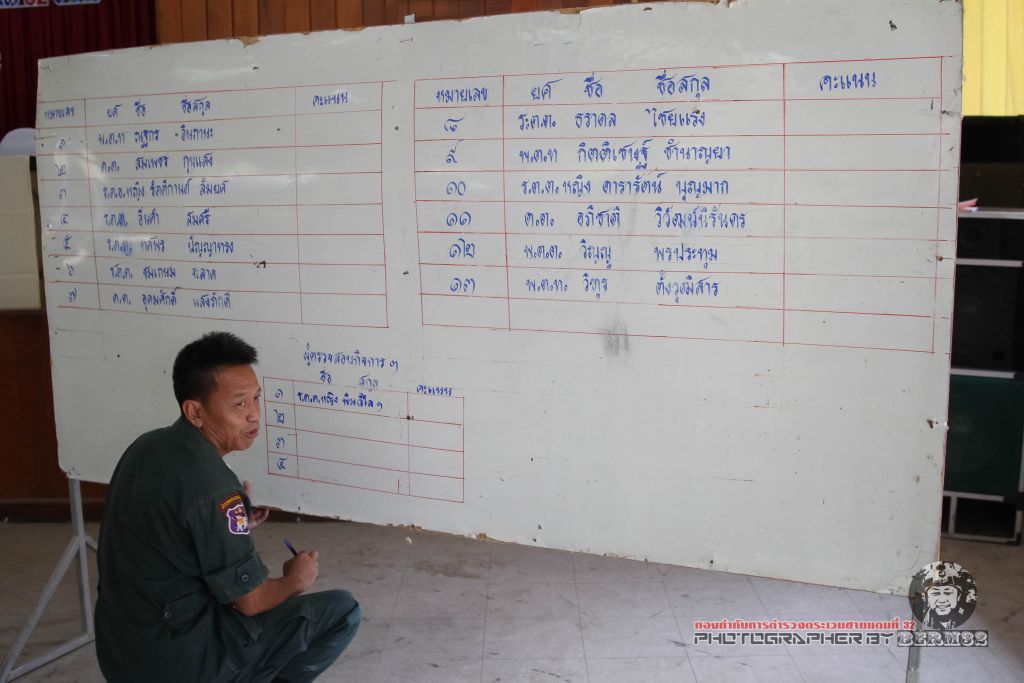 หมายเลข ยศ ชื่อ ชื่อสกุล คะแนน
๑ พ.ต.ท ณฐกร
๒ ด.ต. สมเพชร กุนแสง
๓ ร.ต.อ.หญิง ลัมยศ
๔ ร.ต.ต. อินคำ สมศรี
๕ ร.ต.ต. ปัญญาทรง
๖ ร.ต.ต.
๗ ด.ต. อุดมศักดิ์ แสงภักดี
หมายเลข ยศ ชื่อ ชื่อสกุล คะแนน
๘ ร.ต.ต. ธราดล ไชยแรง
๙ พ.ต.ท กิตติเชษฐ์ ชำนาญยา
๑๐ ร.ต.ต.หญิง ดารารัตน์ บุญมาก
๑๑ ด.ต. อภิชาติ วิวัฒน์นิรันดร
๑๒ พ.ต.ต. วิญญู พรประทุม
๑๓ พ.ต.ท. วิฑูร ตั้งวุฒิสาร
ผู้ตรวจสอบกิจการ ๓
ชื่อ สกุล คะแนน
๑ ร.ต.ต.หญิง
๒
๓
๔
กองกำกับการตำรวจตระเวนชายแดนที่ 32
PHOTOGRAPHER BY BERM32